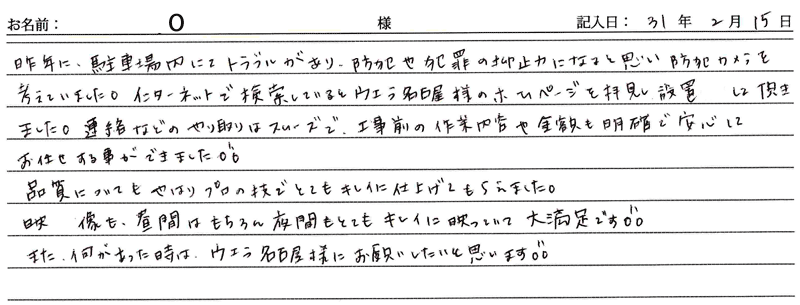 お名前： O 様 記入日： 31 年 2 月 15 日
昨年に、駐車場内にてトラブルがあり、防犯や犯罪の抑止力になると思い 防犯カメラを
考えていました。インターネットで検索しているとウエラ名古屋様のホームページを拝見し 設置 し
ました。連絡などのやり取りはスムーズで、工事前の作業内容や金額も明確で安心して
お任せする事ができました。
品質についてもやはりプロの技でとてもキレイに仕上げてもらえました。
映 像も、昼間はもちろん夜間もとてもキレイに映っていて大満足です。
また、何かあった時は、ウエラ名古屋様にお願いしたいと思います。